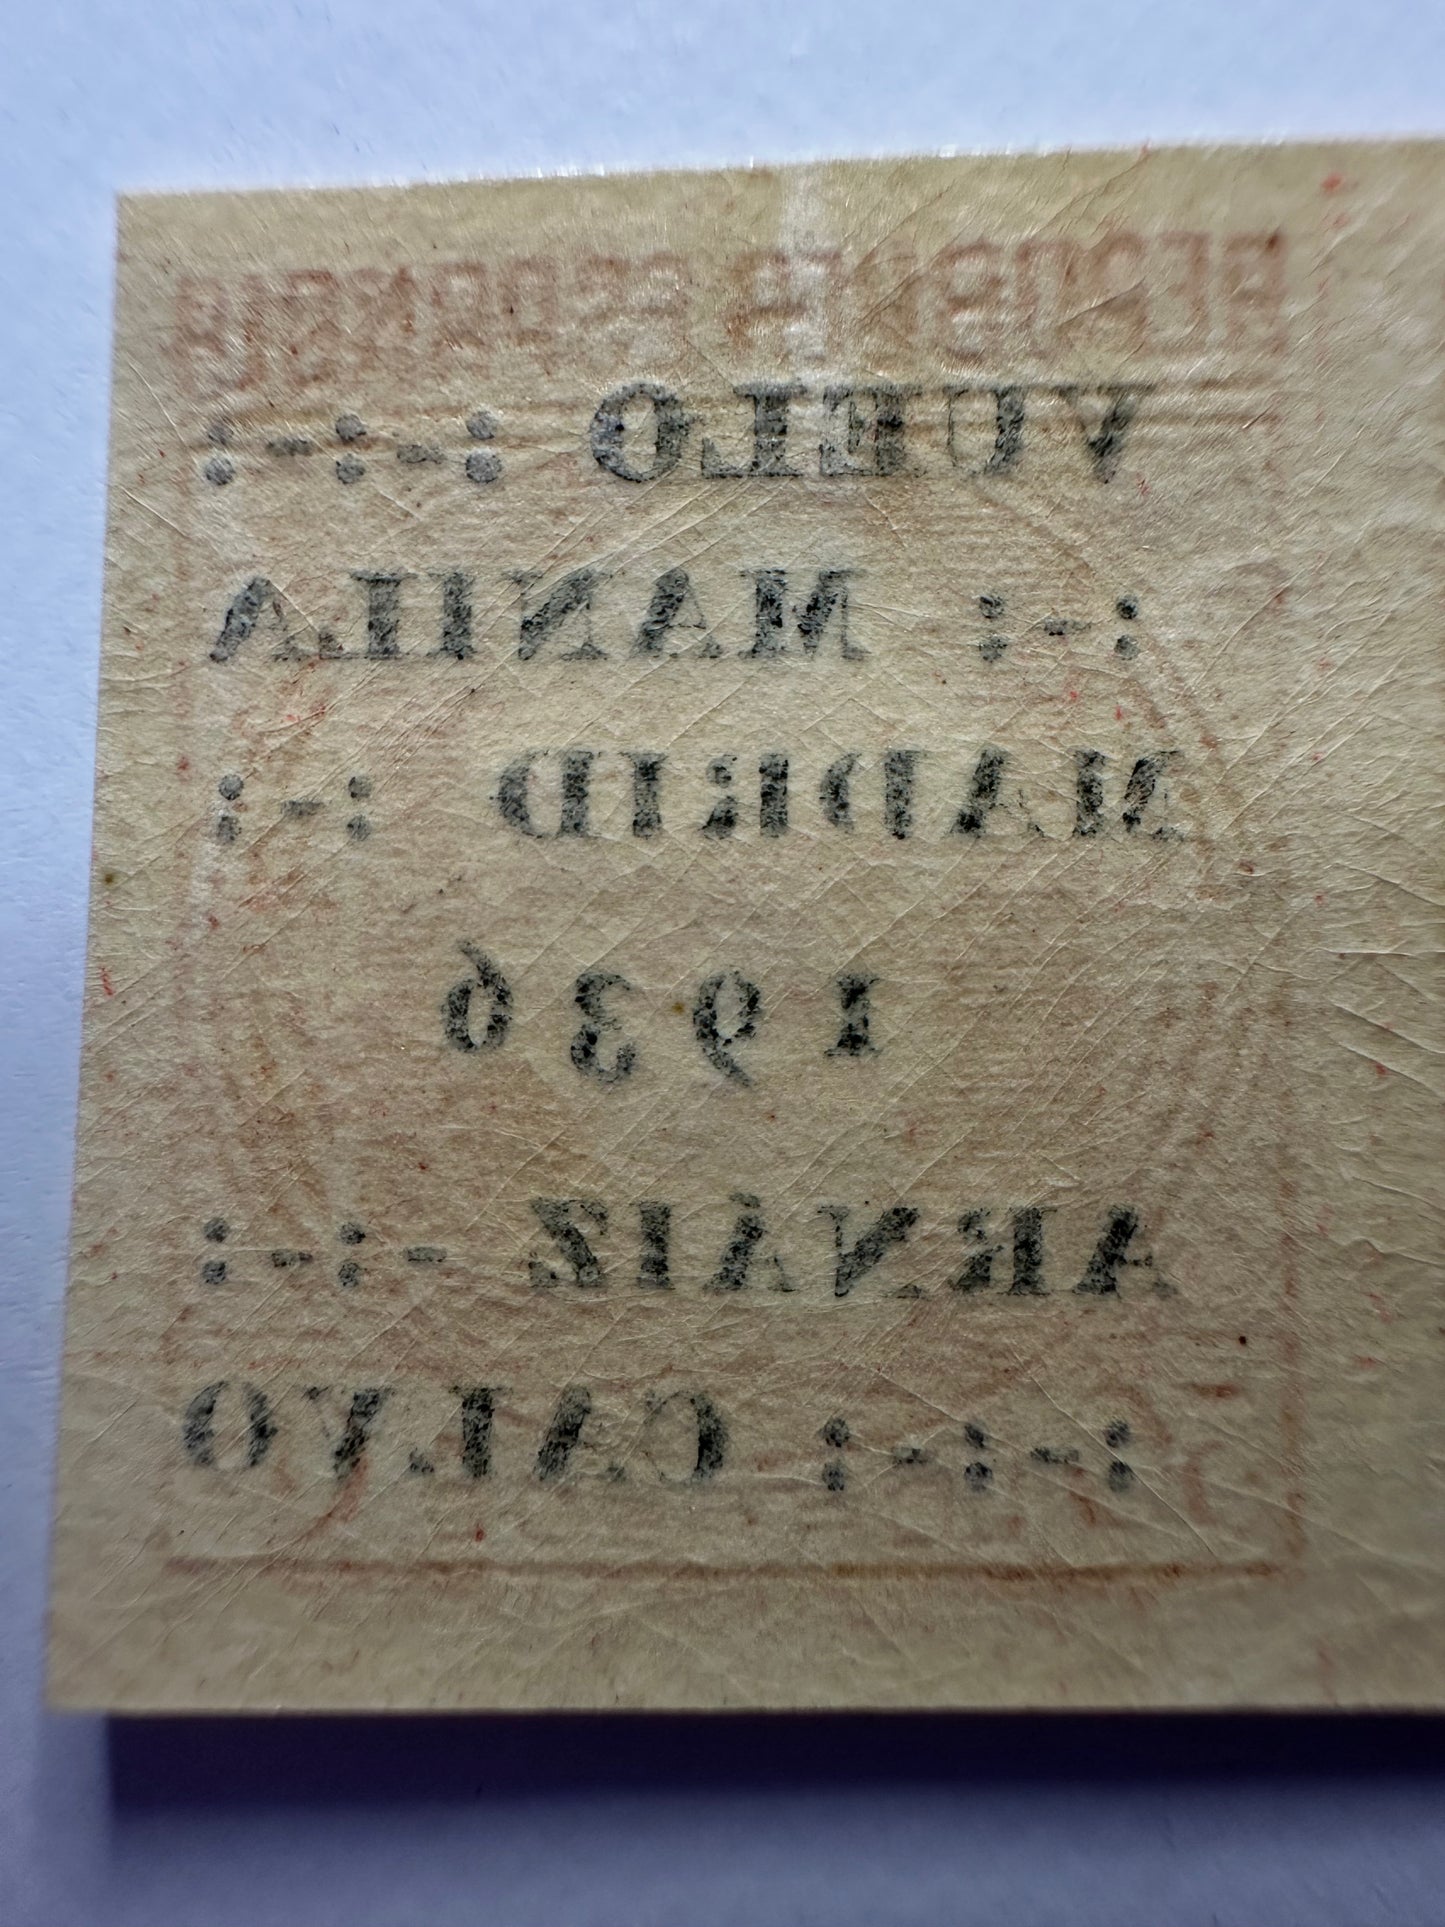 REPUBLICA ESPAÑOLA
VUELO :-:-:
:-: MANILA
MADRID :-:
1936
ARNÁIZ -:-:
:-:-: CALVO